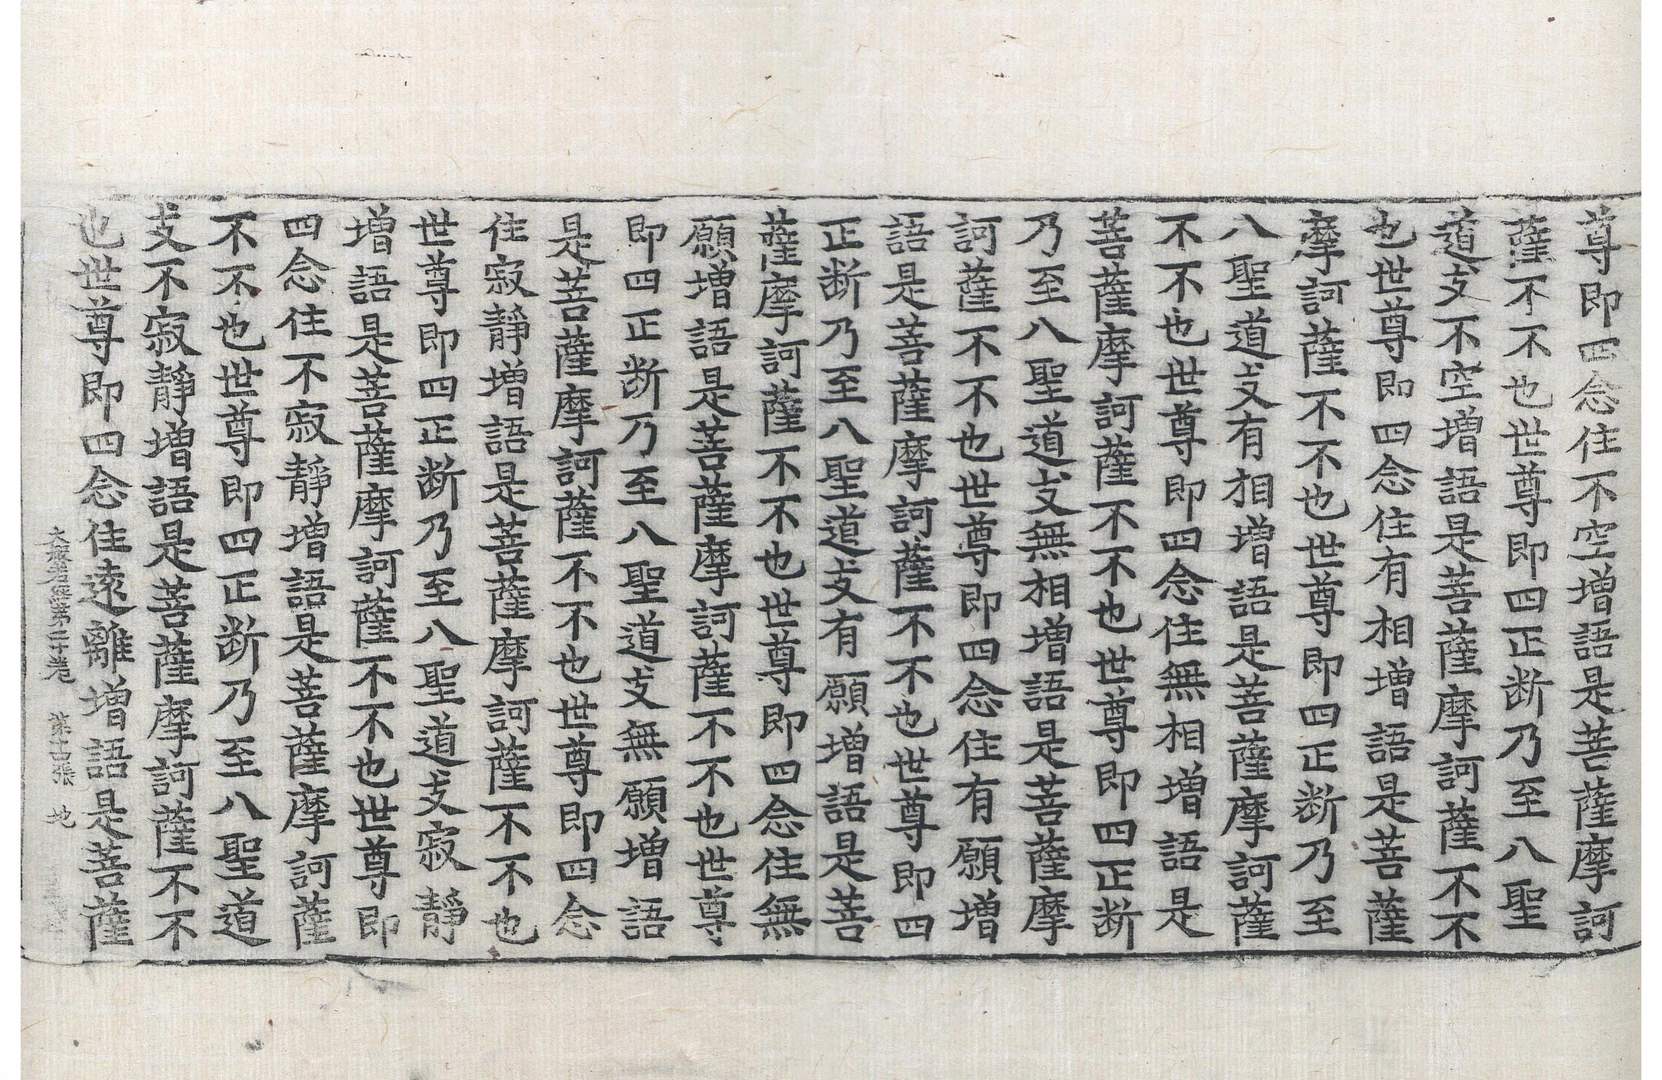 尊即四念住不空增語是菩薩摩訶
薩不不也世尊即四正断乃至八聖
道支不空增語是菩薩摩訶薩不不
也世尊即四念住有相增語是菩薩
摩訶薩不不也世尊即四正断乃至
八聖道支有相增語是菩薩摩訶薩
不不也世尊即四念住無相增語是
菩薩摩訶薩不不也世尊即四正断
乃至八聖道支無相增語是菩薩摩
訶薩不不也世尊即四念住有願增
語是菩薩摩訶薩不不也世尊即四
正断乃至八聖道支有願增語是菩
薩摩訶薩不不也世尊即四念住無
願增語是菩薩摩訶薩不不也世尊
即四正断乃至八聖道支無願增語
是菩薩摩訶薩不不也世尊即四念
住寂靜增語是菩薩摩訶薩不不也
世尊即四正断乃至八聖道支寂靜
增語是菩薩摩訶薩不不也世尊即
四念住不寂靜增語是菩薩摩訶薩
不不也世尊即四正断乃至八聖道
支不寂靜增語是菩薩摩訶薩不不
也世尊即四念住遠離增語是菩薩
大般若經第二十卷 第十四張 地